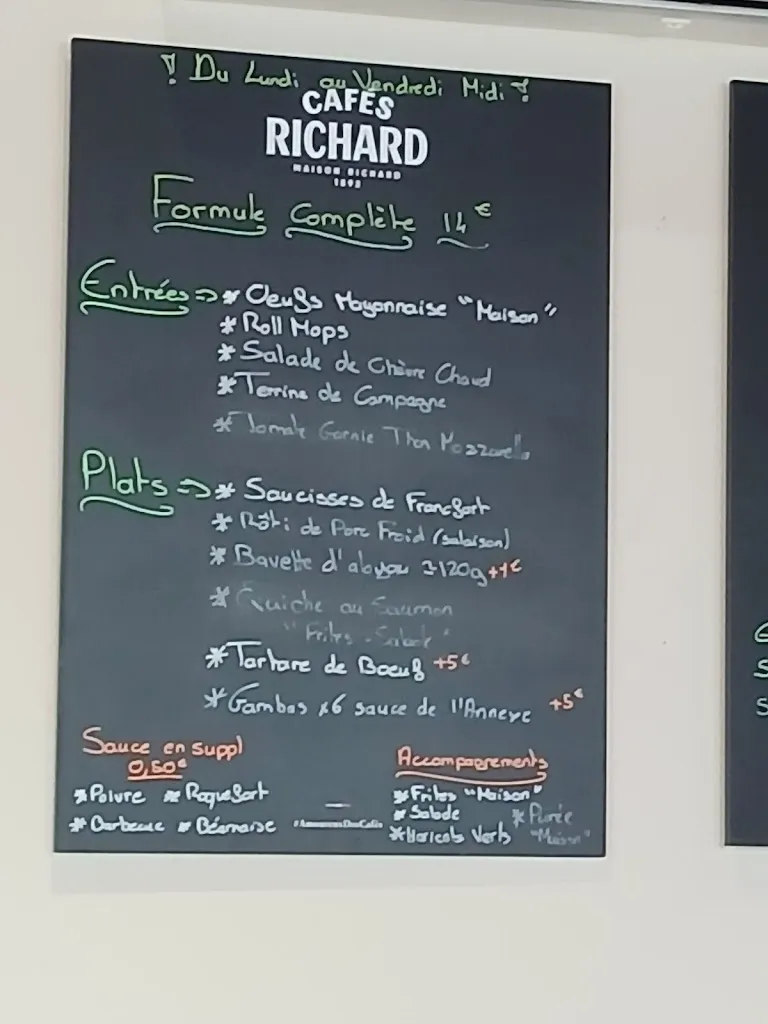 ! Du Lundi au Vendredi Midi !
CAFÉS
RICHARD
MAISON RICHARD
1892
Formule Complète 14€
Entrées => * Oeufs Mayonnaise "Maison"
* Roll Mops
* Salade de Chèvre Chaud
* Terrine de Campagne
* Tomate Garnie Thon Mozzarella
Plats => * Saucisses de Francfort
* Rôti de Porc Froid (salaison)
* Bavette d'aloyau 120g +1€
* Quiche au Saumon
"Frites - Salade"
* Tartare de Boeuf +5€
* Gambas x6 sauce de l'Annexe +5€
Sauce en suppl
0,50€
* Poivre * Roquefort
* Barbecue * Béarnaise
#AmoureuxDesCafés
Accompagnements
* Frites "Maison"
* Salade * Purée
* Haricots Verts "Maison"